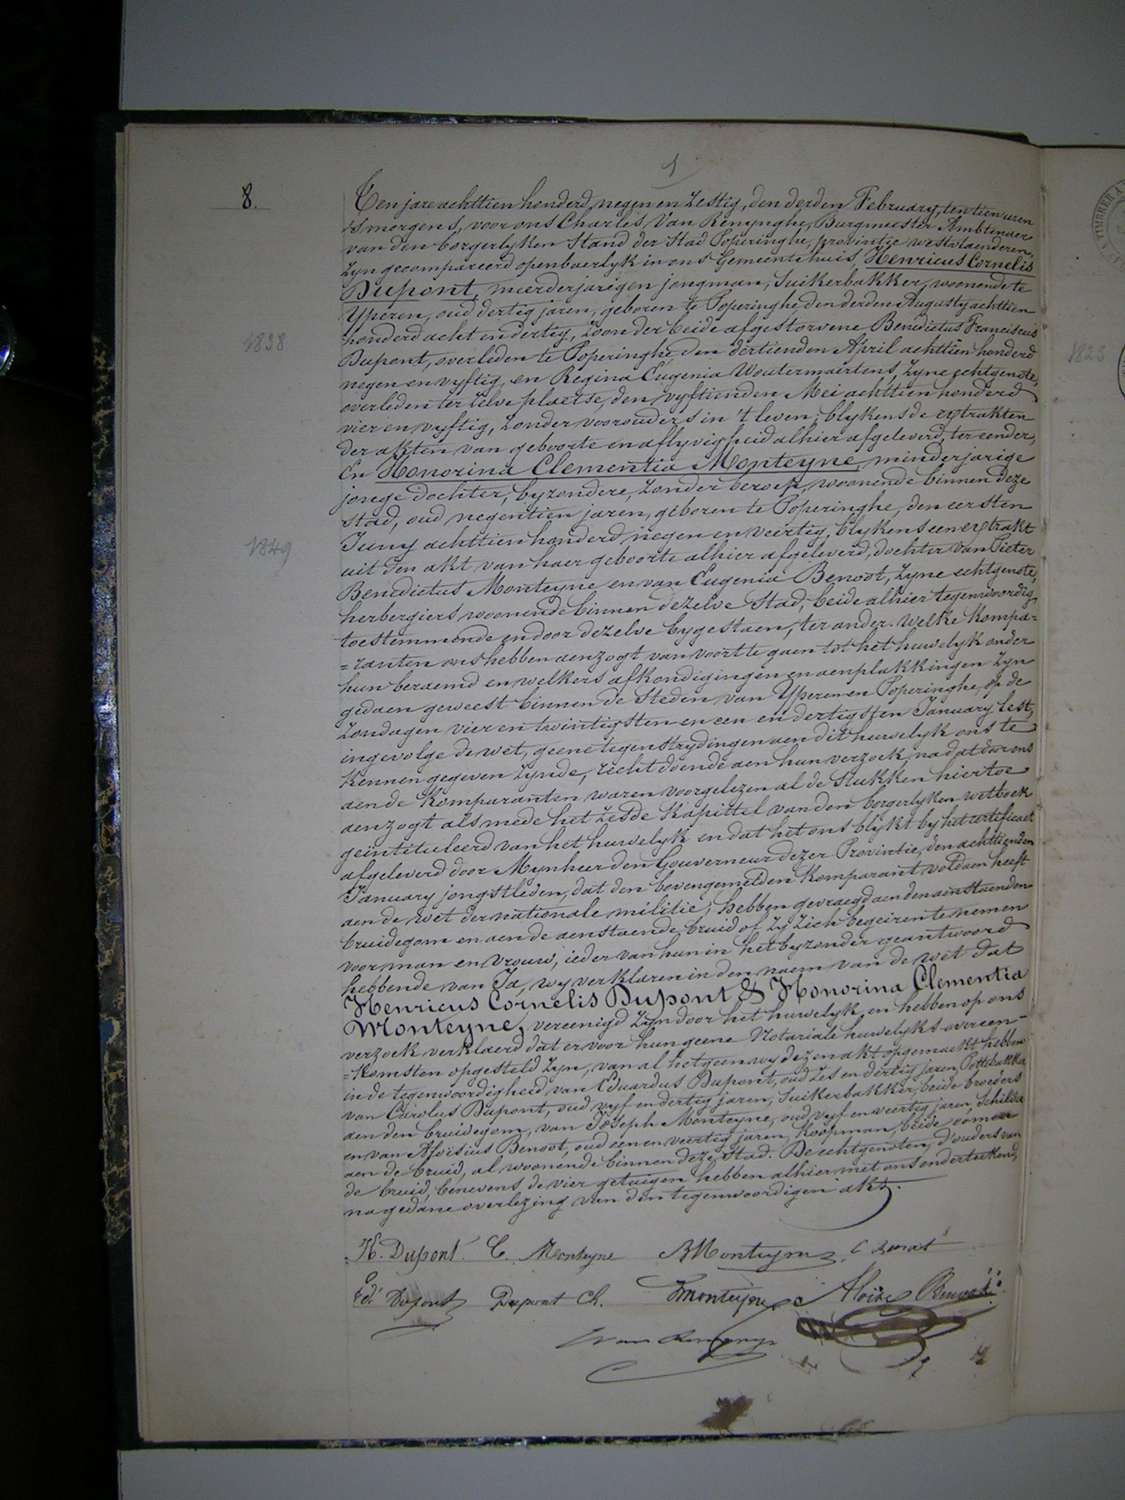 1
8.
Ten jare achttien honderd, negen en zestig, den derden February, ten tien uren
's morgens, voor ons Charles Van Renynghe, Burgmeester Ambtenaer
van den borgerlyken Stand der Stad Poperinghe, provintie westvlaenderen,
zyn gecompareerd openbaerlyk in ons Gemeentehuis, Henricus Cornelis
Dupont, meerderjarigen jongman, Suikerbakker, woonende te
Yperen, oud dertig jaren, geboren te Poperinghe den derden Augusty achttien
honderd acht en dertig, zoon der beide afgestorvene Benedictus Franciscus
1838
Dupont, overleden te Poperinghe den dertienden April achttien honderd
negen en vyftig, en Regina Eugenia Woutermaertens, zyne echtgenote,
overleden ter zelve plaetse, den vyftienden Mei achttien honderd
vier en vyftig, zonder voorouders in 't leven; blykens de extrakten
der akten van geboorte en aflyvigheid alhier afgeleverd, ter eender,
En Honorina Clementia Monteyne, minderjarige
jonge dochter, byzondere, zonder beroep, woonende binnen deze
stad, oud negentien jaren, geboren te Poperinghe, den eersten
Juny achttien honderd, negen en veertig, blykens een extrakt
1849
uit den akt van haer geboorte alhier afgeleverd, dochter van Pieter
Benedictus Monteyne en van Eugenia Benoot, zyne echtgenote,
herbergiers woonende binnen dezelve Stad, beide alhier tegenwoordig
toestemmende en door dezelve bygestaen, ter ander. Welke Kompa-
=ranten ons hebben aenzogt van voort te gaen tot het huwelyk onder
hun beraemd en welkers afkondigingen en aenplakkingen zyn
gedaen geweest binnen de Steden van Yperen en Poperinghe, op de
zondagen vier en twintigsten en een en dertigsten January lest,
ingevolge de wet, geene tegenstrydingen aen dit huwelyk ons te
kennen gegeven zynde, recht doende aen hun verzoek, nadat door ons
aen de Komparanten waren voorgelezen al de Stukken hiertoe
aenzogt als mede het zesde Kapittel van den borgerlyken wetboek
geintituleerd van het huwelyk en dat het ons blykt by het certificaet
afgeleverd door Mynheer den Gouverneur dezer Provintie, den achttienden
January jongstleden, dat den bovengemelden Komparant voldaen heeft
aen de wet der nationale militie; hebben gevraegd aen den aenstaenden
bruidegom en aen de aenstaende bruid of zy zich begeiren te nemen
voor man en vrouw, ieder van hun in het byzonder geantwoord
hebbende van Ja, wy verklaren in den naem van de wet dat
Henricus Cornelis Dupont & Honorina Clementia
Monteyne, vereenigd zyn door het huwelyk, en hebben op ons
verzoek verklaerd dat er voor hun geene Notariale huwelyks overeen-
=komsten opgesteld zyn, van al hetgeen wy dezen akt opgemaekt hebben
in de tegenwoordigheid van Eduardus Dupont, oud zes en dertig jaren,
van Carolus Dupont, oud vyf en dertig jaren, Suikerbakker, beide broeders
aen den bruidegom, van Joseph Monteyne, oud vyf en veertig jaren, Schilder
en van Aloisius Benoot, oud een en veertig jaren, Koopman, beide oomen
aen de bruid, al woonende binnen deze stad. De echtgenoten, d'ouders van
de bruid, benevens de vier getuigen hebben alhier met ons onderteekend,
na gedane overlezing van den tegenwoordigen akt.
H. Dupont. C. Monteyne B Monteyne
Ed. Dupont Dupont Ch. J monteyne Aloïse Benoot
1828